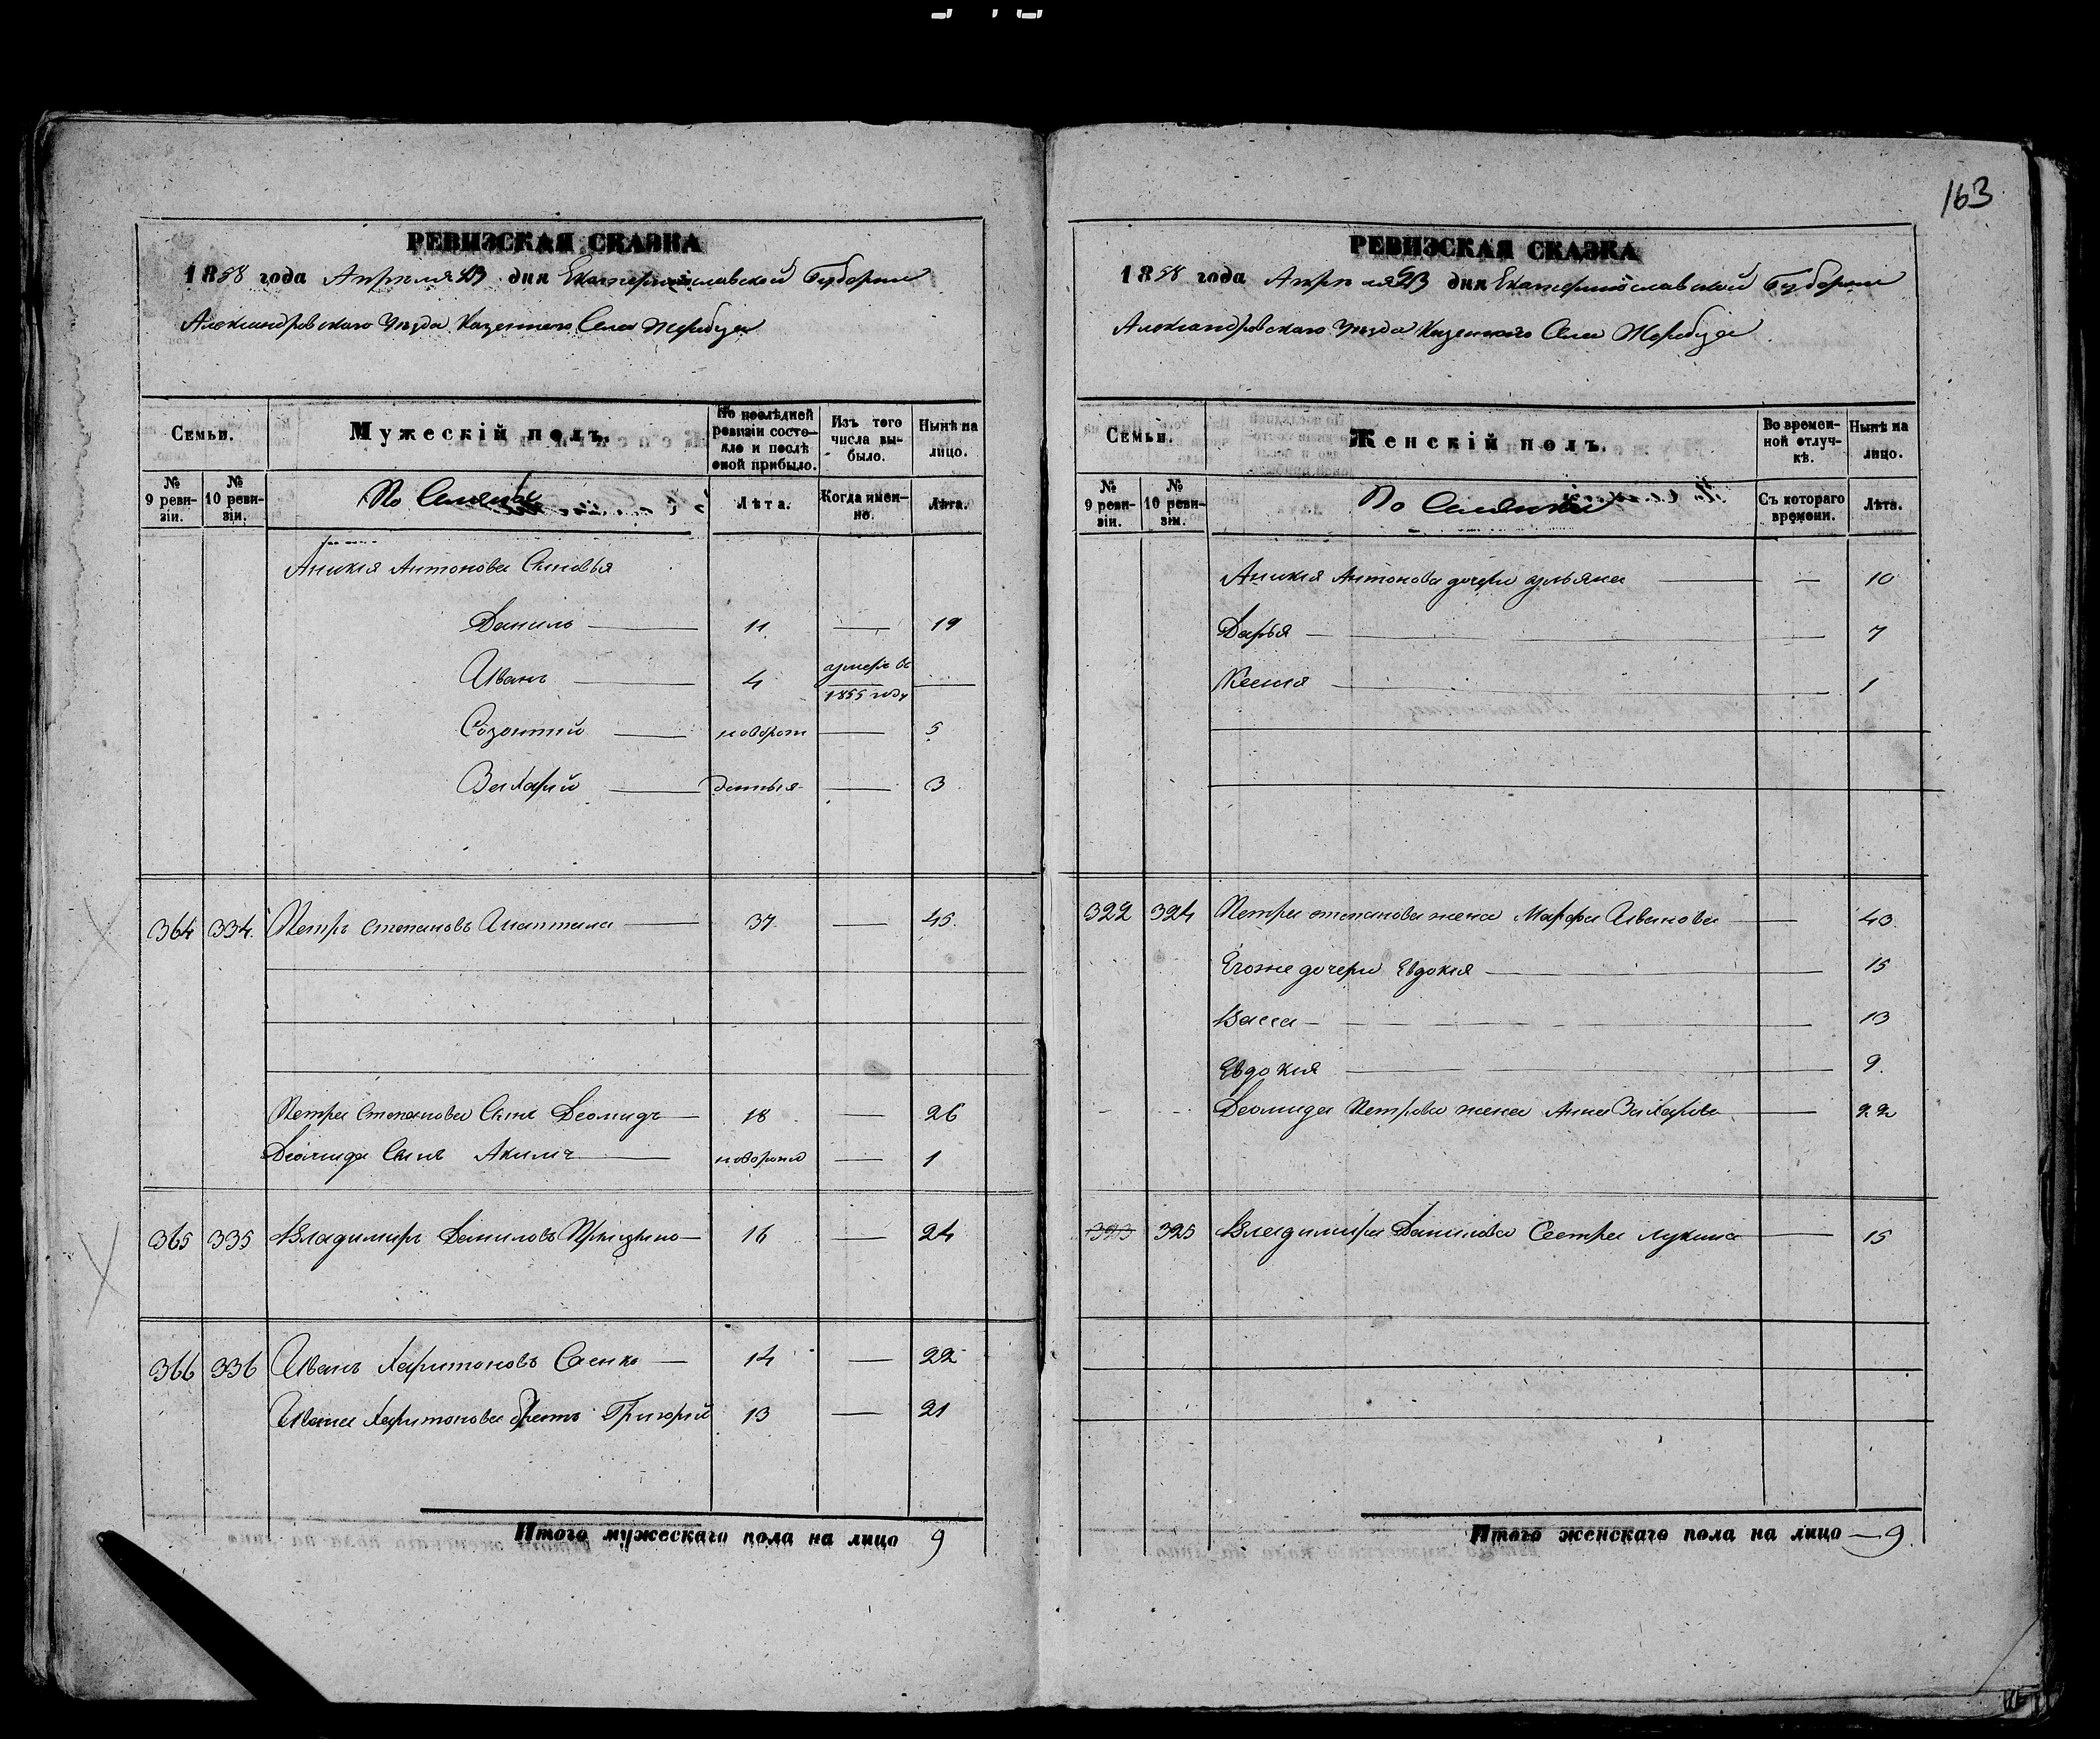 163
РЕВИЗСКАЯ СКАЗКА
1858 года Апреля 23 дня Екатеринославской Губернии
Александровскаго Уезда Казеннаго Села Жеребца
Семьи.
Мужескій полъ.
По послѣдней ревизіи состояло и послѣ оной прибыло.
Изъ того числа выбыло.
Нынѣ на лицо.
№ 9 ревизіи.
№ 10 ревизіи.
Лѣта.
Когда именно.
Лѣта.
Аникія Антонова Сыновья
Данило 11 — 19
Иванъ 4 умеръ въ 1855 году —
Созонтий новорож 5
Захарий денныя — 3
364 334 Петръ Степановъ 37 — 45
Петра Степанова Сынъ Деомидъ 18 — 26
Деомида Сынъ Акимъ новорожд — 1
365 335 Владимиръ Даниловъ 16 — 24
366 336 Иванъ Харитоновъ Саенко — 14 — 22
Ивана Харитонова братъ Григорий 13 — 21
Итого мужескаго пола на лицо 9
РЕВИЗСКАЯ СКАЗКА
1858 года Апреля 23 дня Екатеринославской Губернии
Александровскаго Уезда Казеннаго Села Жеребца
Семьи.
Женскій полъ.
Во временной отлучкѣ.
Нынѣ на лицо.
№ 9 ревизіи.
№ 10 ревизіи.
Съ котораго времени.
Лѣта.
Аникия Антонова дочери ульяна — 10
Дарья — 7
Ксения — 1
322 324 Петра степанова жена Марфа Иванова — 43
Егоже дочери Евдокия — 15
Васса — 13
Евдокия — 9
Деомида Петрова жена Анна Захарова — 22
323 325 Владимира Данилова Сестра Лукия — 15
Итого женскаго пола на лицо — 9